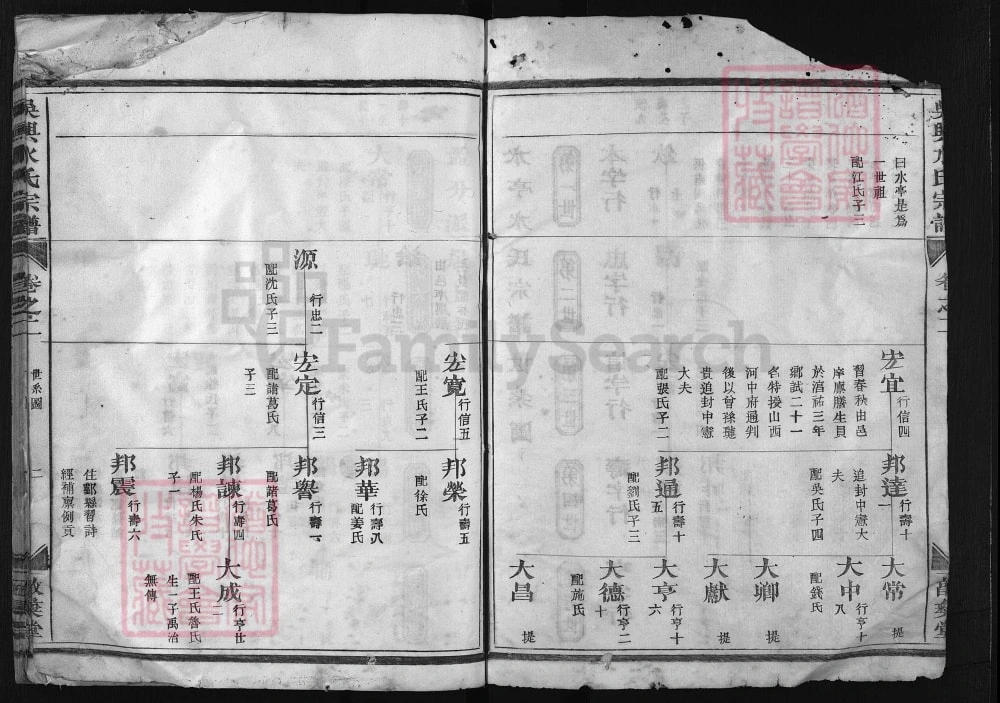 曰水亭是爲
一世祖
配江氏子三
宏宜 行信四
習春秋由邑
庠廩膳生員
於湻祐三年
鄉試二十一
名特授山西
河中府通判
後以曾孫璉
貴追封中憲
大夫
配張氏子二
邦達 行壽十一
追封中憲大
夫
配吳氏子四
大常 提
大中 行亨十八
配錢氏
大卿 提
大獻 提
邦通 行壽十五
配劉氏子三
大亨 行亨十六
大德 行亨二十
配施氏
大昌 提
宏寬 行信五
配王氏子二
邦榮 行壽五
配徐氏
邦華 行壽八
配姜氏
源 行忠二
配沈氏子三
宏定 行信三
配諸葛氏
子三
邦譽 行壽一
配諸葛氏
邦諫 行壽四
配楊氏朱氏
子一
大成 行亨廿二
配王氏魯氏
生一子禹治
無傳
邦震 行壽六
住鄞縣習詩
經補稟例貢
吳興水氏宗譜
卷之二
世系圖
二
FamilySearch